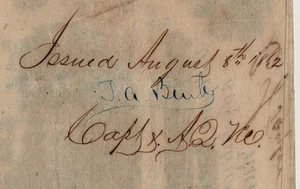 Issued August 8th 1862
J. A. Bentz
Capt & A.Q.M.